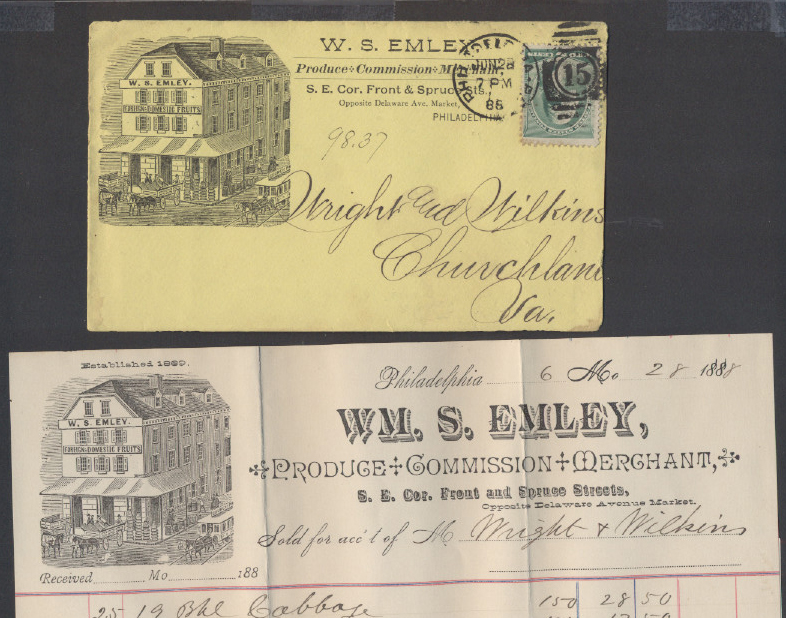 W. S. EMLEY,
Produce Commission Merchant,
S. E. Cor. Front & Spruce Sts.,
Opposite Delaware Ave. Market,
PHILADELPHIA
W. S. EMLEY.
FOREIGN & DOMESTIC FRUITS
JUN 28
7 PM
88
15
98.37
Wright and Wilkins
Churchland
Va.
Established 1869.
W. S. EMLEY.
FOREIGN & DOMESTIC FRUITS
Philadelphia 6 Mo 28 1888
WM. S. EMLEY,
PRODUCE COMMISSION MERCHANT,
S. E. Cor. Front and Spruce Streets,
Opposite Delaware Avenue Market.
Sold for acc't of M Wright & Wilkins
Received Mo 188
25 19 Bbl Cabbage 150 28 50